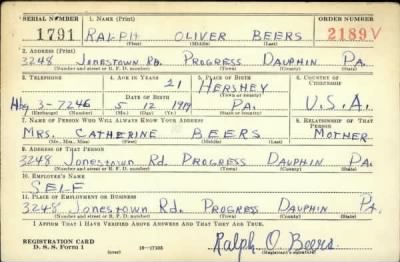 SERIAL NUMBER 1. NAME (Print) ORDER NUMBER
1791 RALPH OLIVER BEERS 2189V
(First) (Middle) (Last)
2. ADDRESS (Print)
3248 Jonestown Rd. PROGRESS DAUPHIN PA.
(Number and street or R. F. D. number) (Town) (County) (State)
3. TELEPHONE 4. AGE IN YEARS 5. PLACE OF BIRTH 6. COUNTRY OF CITIZENSHIP
21 HERSHEY
DATE OF BIRTH (Town or county)
Hbg 3-7246 5 12 1919 PA. U.S.A.
(Exchange) (Number) (Mo.) (Day) (Yr.) (State or country)
7. NAME OF PERSON WHO WILL ALWAYS KNOW YOUR ADDRESS 8. RELATIONSHIP OF THAT PERSON
MRS. CATHERINE BEERS MOTHER
(Mr., Mrs., Miss) (First) (Middle) (Last)
9. ADDRESS OF THAT PERSON
3248 Jonestown Rd. PROGRESS DAUPHIN PA.
(Number and street or R. F. D. number) (Town) (County) (State)
10. EMPLOYER'S NAME
SELF
11. PLACE OF EMPLOYMENT OR BUSINESS
3248 Jonestown Rd. PROGRESS DAUPHIN PA.
(Number and street or R. F. D. number) (Town) (County) (State)
I AFFIRM THAT I HAVE VERIFIED ABOVE ANSWERS AND THAT THEY ARE TRUE.
REGISTRATION CARD
D. S. S. Form 1 (over) 16-17105 Ralph O. Beers
(Registrant's signature)